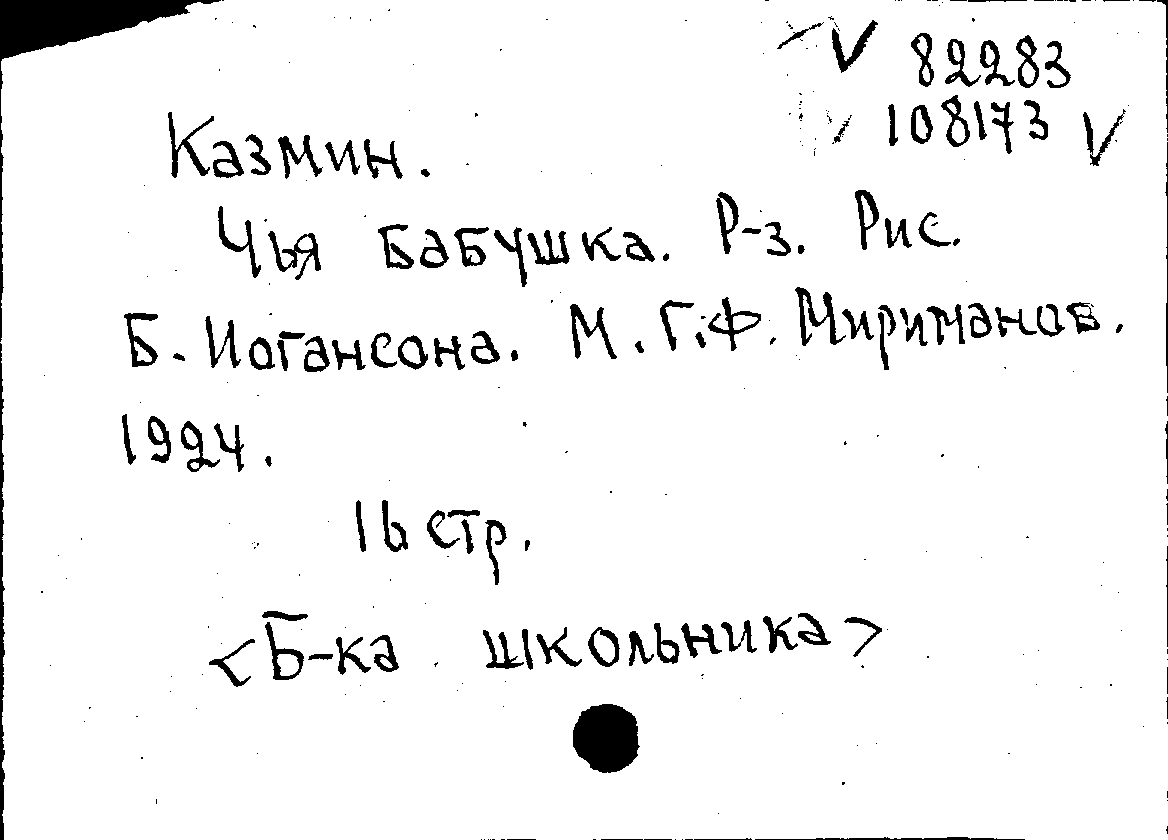 V 82283
108173 V
Казмин.
Чья бабушка. Р-з. Рис.
Б. Иогансона. М. Г.Ф. Мириманов.
1924.
16 стр.
<Б-ка школьника>